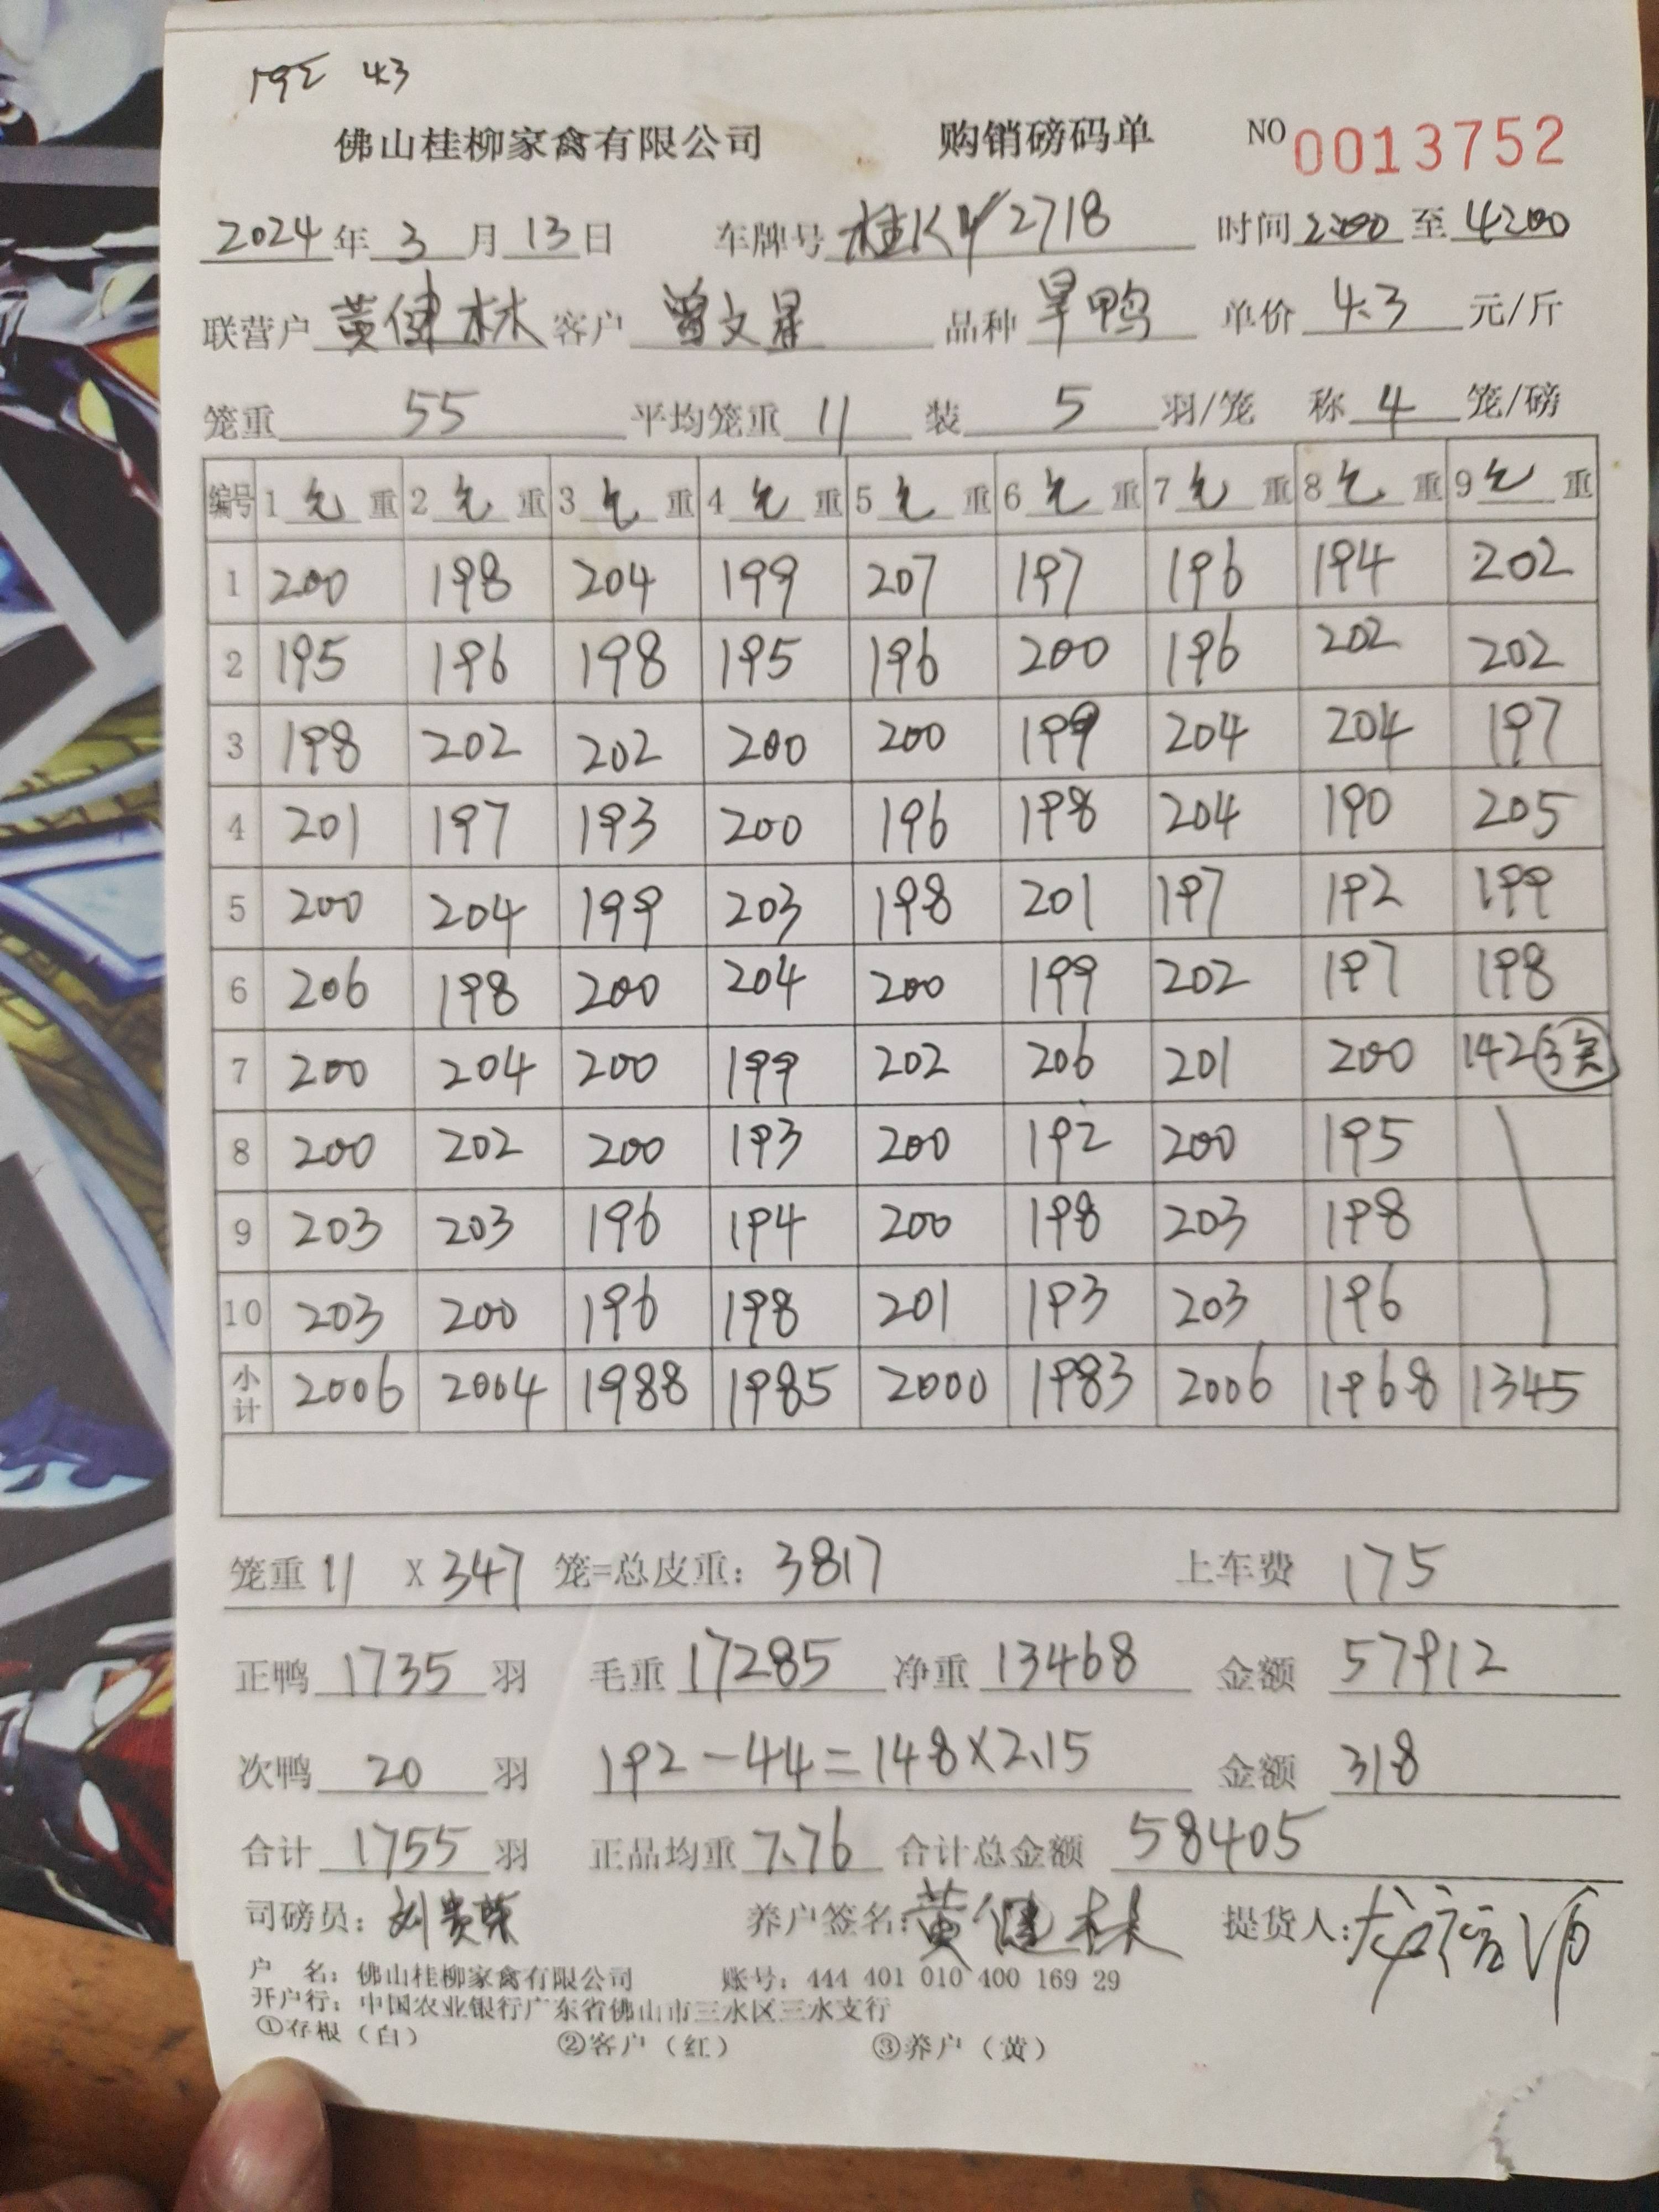 192 4.3
佛山桂柳家禽有限公司 购销磅码单 NO 0013752
2024年3月13日 车牌号 桂KY2718 时间 2:00 至 4:00
联营户 黄健林 客户 曾文星 品种 旱鸭 单价 4.3 元/斤
笼重 55 平均笼重 11 装 5 羽/笼 称 4 笼/磅
编号 1 毛 重 2 毛 重 3 毛 重 4 毛 重 5 毛 重 6 毛 重 7 毛 重 8 毛 重 9 毛 重
1 200 198 204 199 207 197 196 194 202
2 195 196 198 195 196 200 196 202 202
3 198 202 202 200 200 199 204 204 197
4 201 197 193 200 196 198 204 190 205
5 200 204 199 203 198 201 197 192 199
6 206 198 200 204 200 199 202 197 198
7 200 204 200 199 202 206 201 200 142 3
8 200 202 200 193 200 192 200 195
9 203 203 196 194 200 198 203 198
10 203 200 196 198 201 193 203 196
小计 2006 2004 1988 1985 2000 1983 2006 1968 1345
笼重 11 X 347 笼=总皮重: 3817 上车费 175
正鸭 1735 羽 毛重 17285 净重 13468 金额 57912
次鸭 20 羽 192-44=148×2.15 金额 318
合计 1755 羽 正品均重 7.76 合计总金额 58405
司磅员: 刘贵荣 养户签名: 黄健林 提货人:
户 名: 佛山桂柳家禽有限公司 账号: 444 401 010 400 169 29
开户行: 中国农业银行广东省佛山市三水区三水支行
①存根（白） ②客户（红） ③养户（黄）